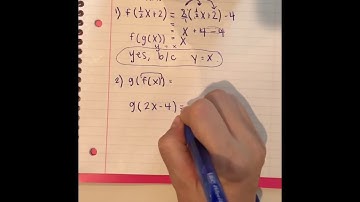 1) f(½x+2) = 2(½x+2)-4
= x+4-4
f(g(x)) = x
y = x
yes, b/c y=x
2) g(f(x)) =
g(2x-4) =